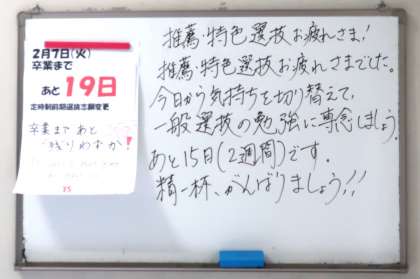 2月7日(火)
卒業まで
あと19日
定時制前期選抜志願変更
卒業まであと
残りわずか!
15
推薦・特色選抜お疲れさま!
推薦・特色選抜お疲れさまでした。
今日から気持ちを切り替えて、
一般選抜の勉強に専念しましょう。
あと15日(2週間)です。
精一杯、がんばりましょう!!